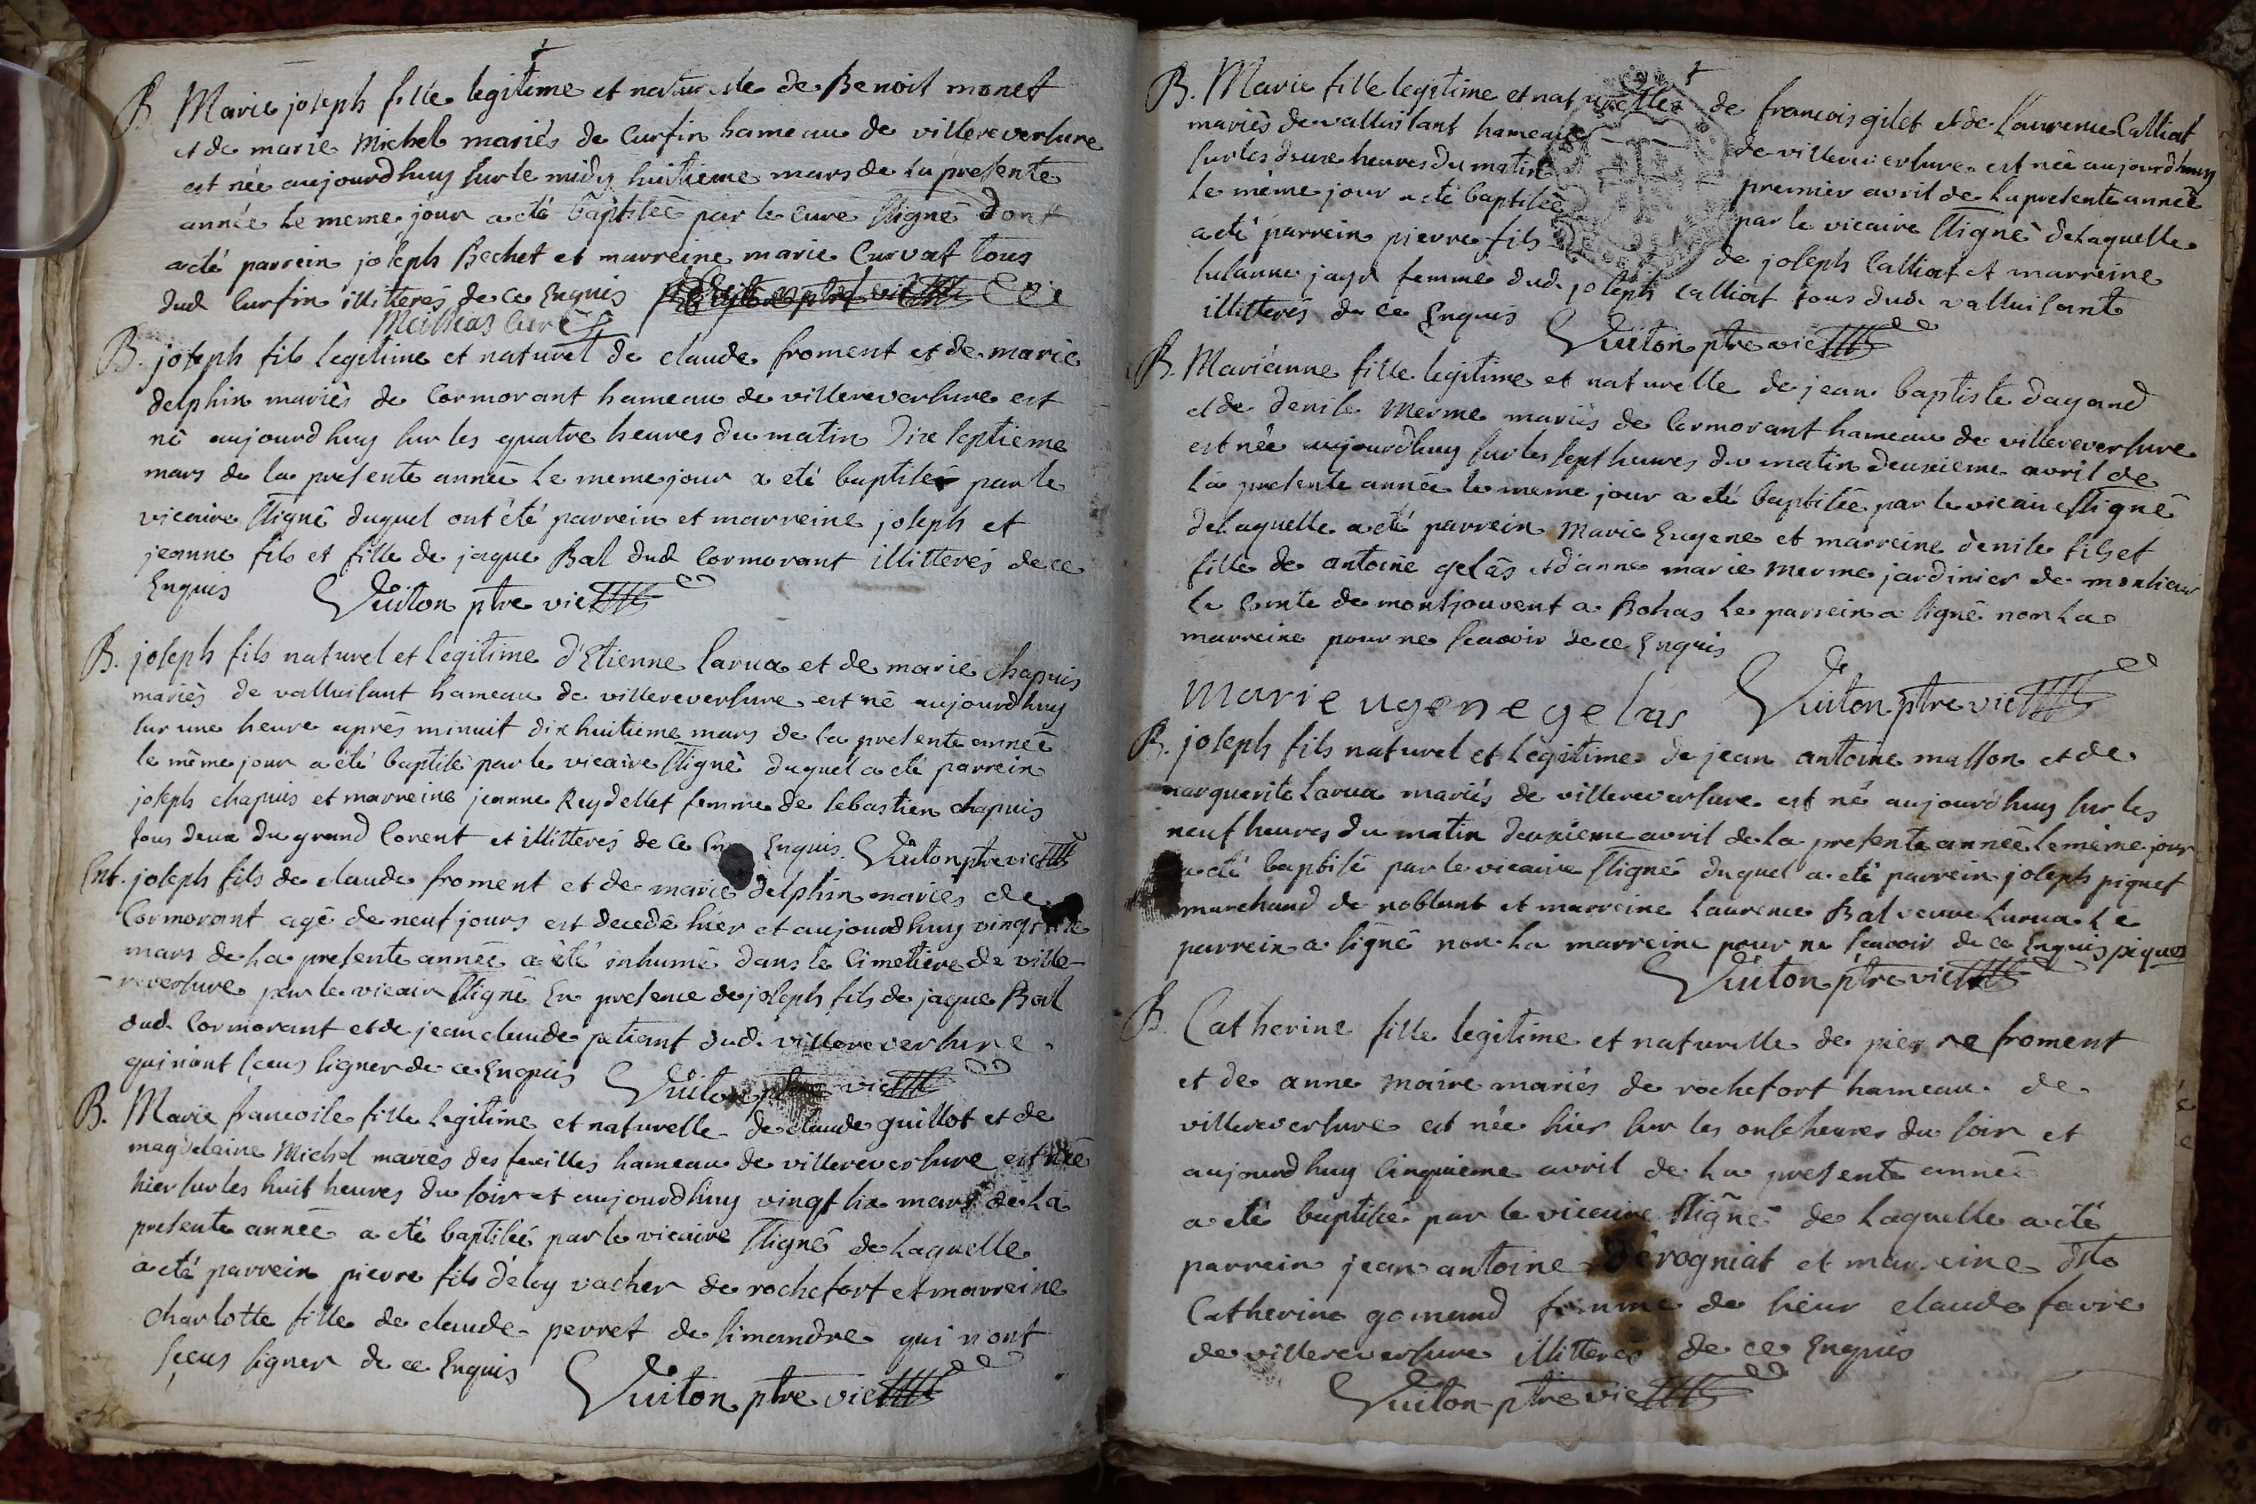 B. Marie joseph fille legitime et naturelle de Benoit monet
et de marie Michel mariés de Curfin hameau de villereversure
est née aujourdhuy sur le midy huitieme mars de la presente
année le meme jour a eté baptisée par le curé ssigné dont
a eté parrein joseph Bechet et marreine marie Curvat tous
dud Curfin illitterés de ce Enquis
Meillias Curé
B. joseph fils legitime et naturel de claude froment et de marie
delphin mariés de Cormorant hameau de villereversure est
né aujourdhuy sur les quatre heures du matin dix septieme
mars de la presente année le meme jour a eté baptisé par le
vicaire ssigné duquel ont été parrein et marreine joseph et
jeanne fils et fille de jaque Bal dud Cormorant illitterés de ce
Enquis Vuiton ptre vic
B. joseph fils naturel et legitime d'Etienne Carua et de marie chapuis
mariés de valluisant hameau de villereversure est né aujourdhuy
sur une heure aprés minuit dix huitieme mars de la presente année
le même jour a eté baptisé par le vicaire ssigné duquel a eté parrein
joseph chapuis et marreine jeanne Reydellet femme de sebastien chapuis
tous deux du grand Corent et illitterés de ce Enquis. Vuiton ptre vic
Ent. joseph fils de claude froment et de marie delphin mariés de
Cormorant agé de neuf jours est decedé hier et aujourdhuy vingt
mars de la presente année a été inhumé dans le Cimetiere de ville-
-reversure par le vicaire ssigné En presence de joseph fils de jaque Bal
dud. Cormorant et de jean claude pettant dud. villereversure
qui n'ont sceus signer de ce Enquis Vuiton ptre vic
B. Marie francoise fille legitime et naturelle de claude guillot et de
magdelaine Michel mariés des feuilles hameau de villereversure est née
hier sur les huit heures du soir et aujourdhuy vingt six mars de la
presente année a eté baptisée par le vicaire ssigné de laquelle
a eté parrein pierre fils d'éley vacher de rochefort et marreine
charlotte fille de claude perret de simandre qui n'ont
sceus signer de ce Enquis Vuiton ptre vic
B. Marie fille legitime et naturelle de francois gilet et de Laurence Calliat
mariés de valluisant hameau de villereversure est née aujourdhuy
sur les deux heures du matin premier avril de la presente année
le même jour a eté baptisée par le vicaire ssigné de laquelle
a eté parrein pierre fils de joseph Calliat et marreine
susanne jayr femme dud. joseph Calliat tous dud. valluisant
illitterés de ce Enquis Vuiton ptre vic
B. Marianne fille legitime et naturelle de jean baptiste dagand
et de denise Merme mariés de Cormorant hameau de villereversure
est née aujourdhuy sur les sept heures du matin deuxieme avril de
la presente année le meme jour a eté baptisée par le vicaire ssigné
de laquelle a eté parrein Marie Eugene et marreine denise fils et
fille de antoine gelâs et d'anne marie merme jardinier de monsieur
le Comte de montjouvent a Bohas le parrein a signé non la
marreine pour ne scavoir de ce Enquis
marie ugene gelas Vuiton ptre vic
B. joseph fils naturel et legitime de jean antoine masson et de
marguerite Carua mariés de villereversure est né aujourdhuy sur les
neuf heures du matin deuxieme avril de la presente année le même jour
a eté baptisé par le vicaire ssigné duquel a eté parrein joseph piquet
marchand de noblent et marreine Laurence Bal veuve Carua le
parrein a signé non la marreine pour ne scavoir de ce Enquis piquet
Vuiton ptre vic
B. Catherine fille legitime et naturelle de pierre froment
et de anne Maire mariés de rochefort hameau de
villereversure est née hier sur les onse heures du soir et
aujourdhuy Cinquieme avril de la presente année
a eté baptisée par le vicaire ssigné de laquelle a eté
parrein jean antoine derogniat et marreine dlle
Catherine gomand femme de sieur claude favre
de villereversure illitterés de ce Enquis
Vuiton ptre vic